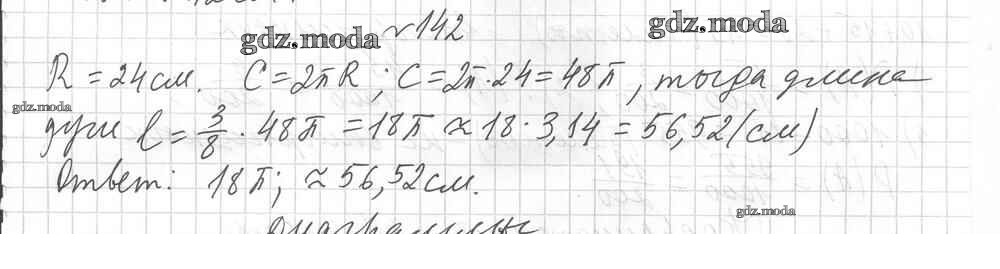 №142
gdz.moda gdz.moda
R = 24 см. C = 2πR; C = 2π·24 = 48π, тогда длина
gdz.moda
дуги ℓ = 3/8 · 48π = 18π ≈ 18 · 3,14 = 56,52 (см)
Ответ: 18π; ≈ 56,52 см.
gdz.moda